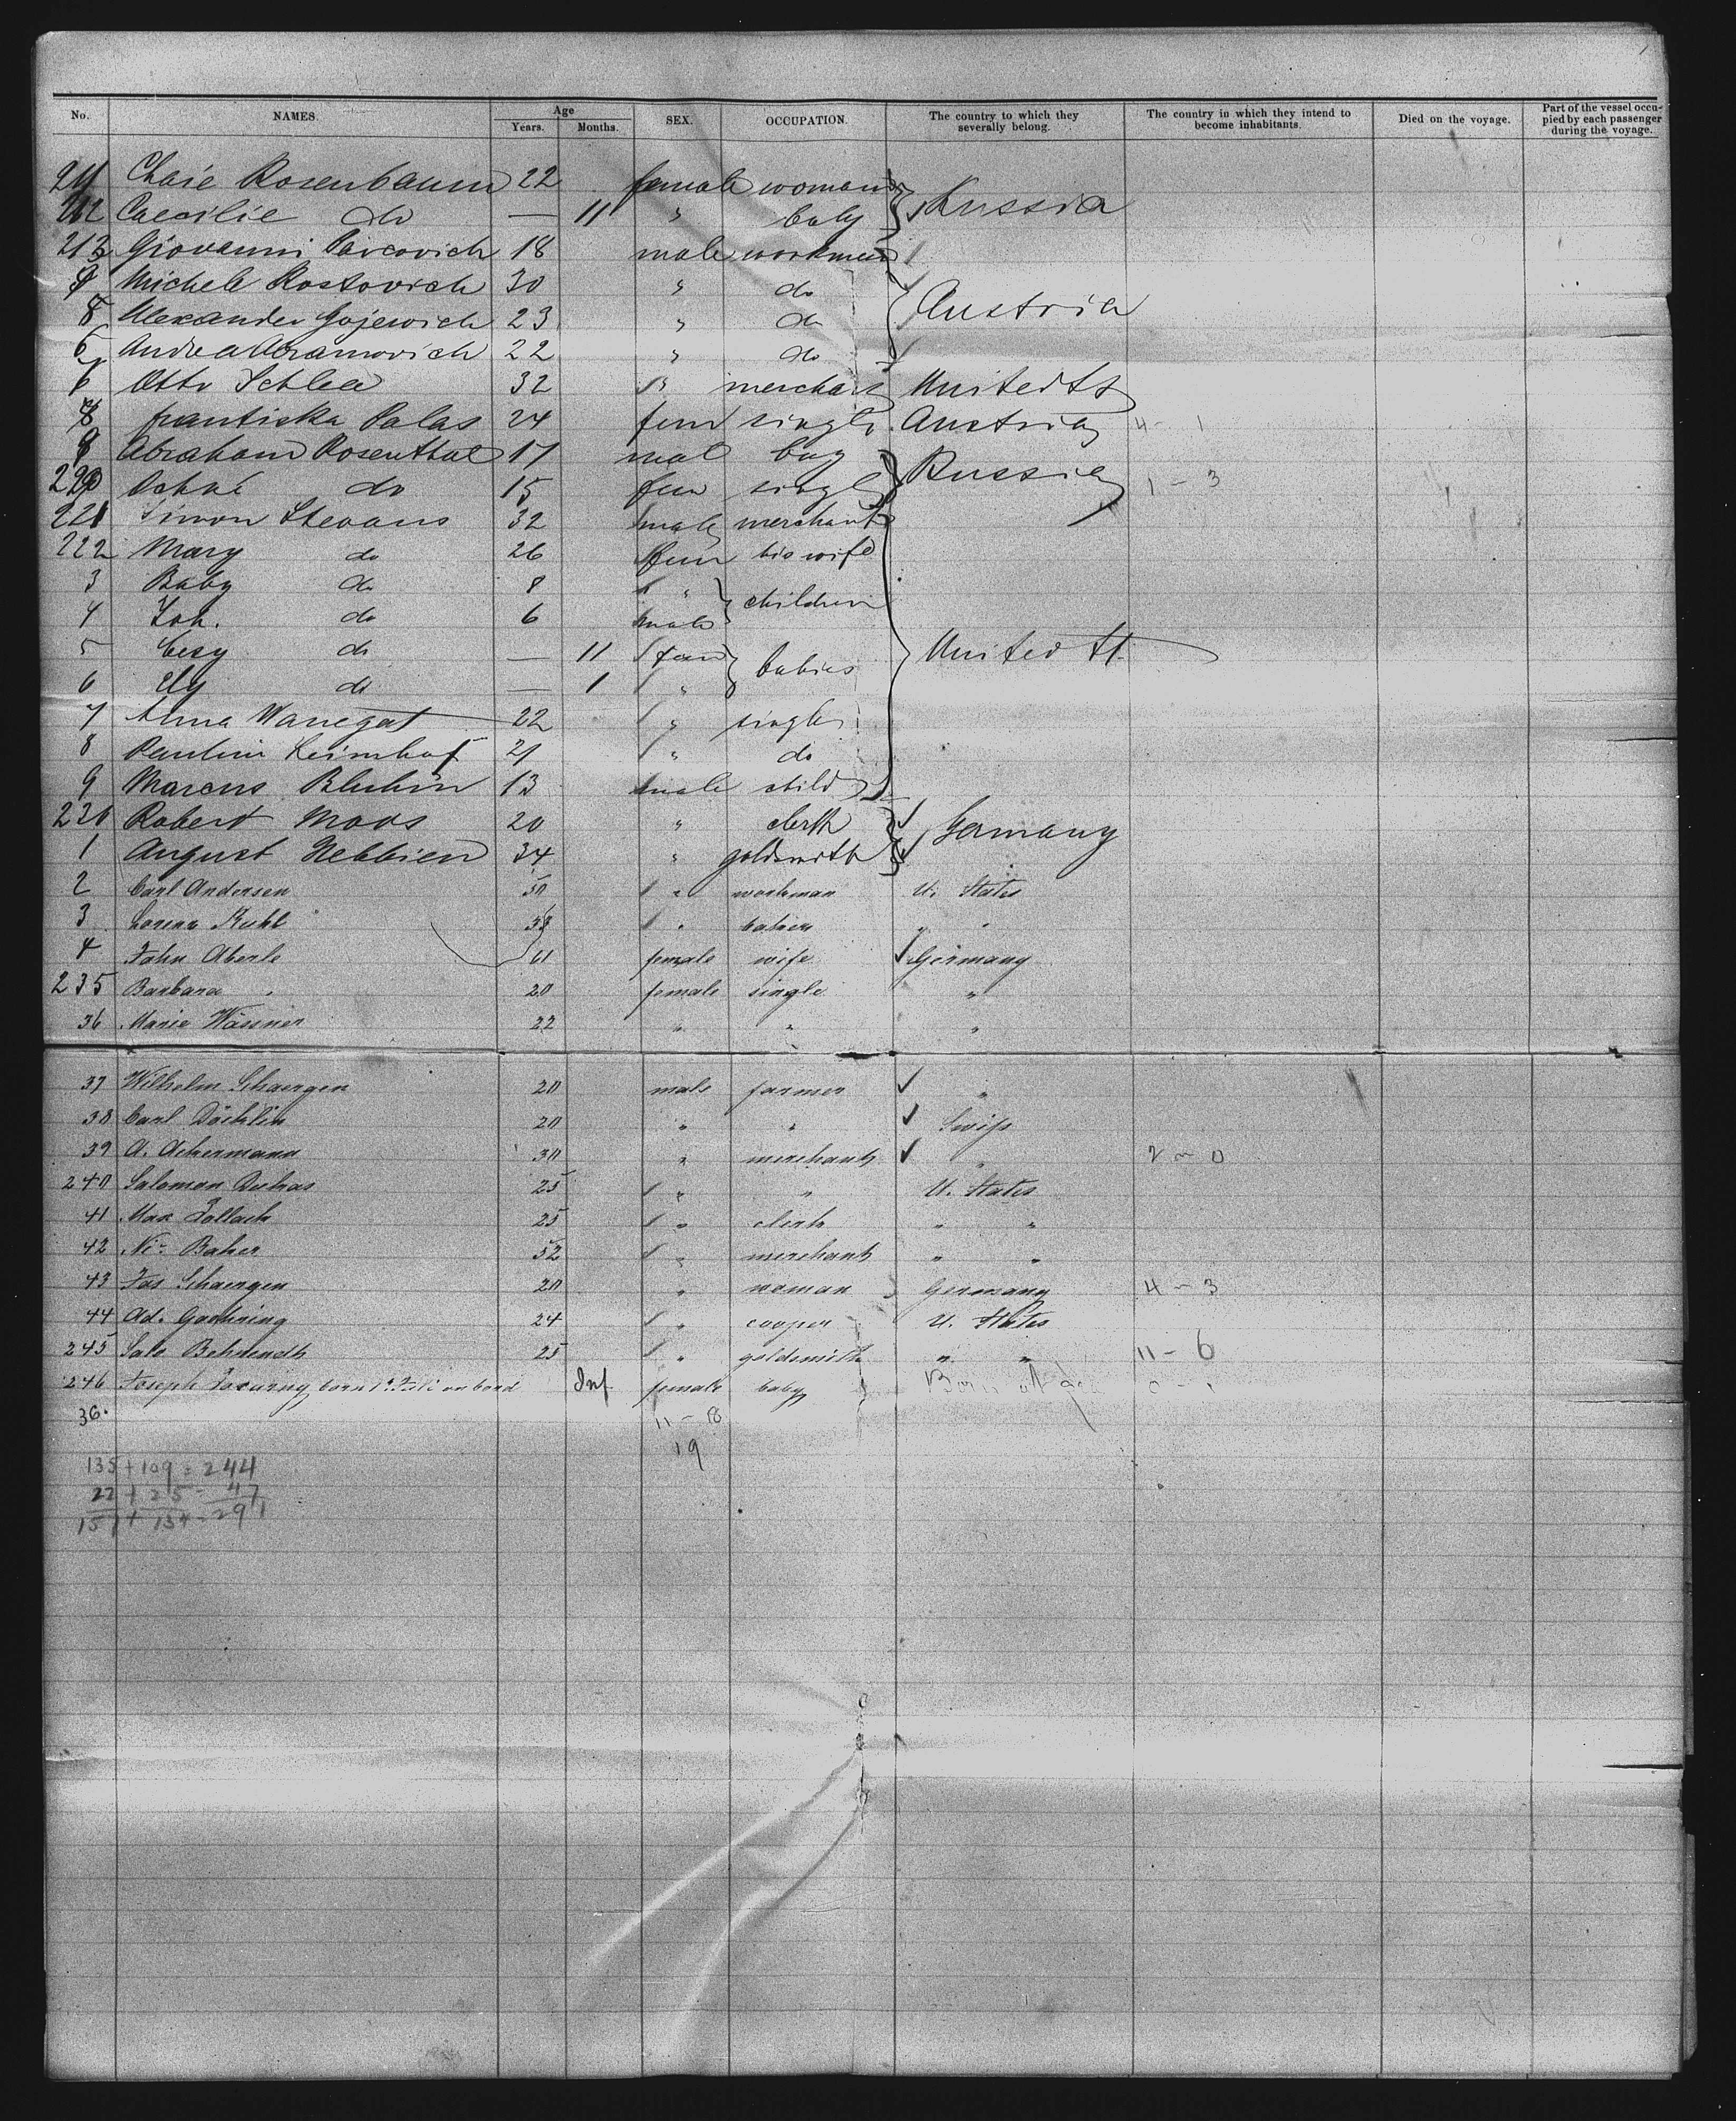 No. NAMES. Age Years. Months. SEX. OCCUPATION. The country to which they severally belong. The country in which they intend to become inhabitants. Died on the voyage. Part of the vessel occupied by each passenger during the voyage.
211 Chaie Rosenbaum 22 female woman Russia
212 Caecilie do — 11 " baby
213 Giovanni Paicovich 18 male workmen
4 Michele Rostovich 30 " do Austria
Alexander Gojewich 23 " do
Andrea Abramovich 22 " do
Otto Schlea 32 " merchant United St
8 Frantiska Palas 24 fem single Austria 4 - 1
9 Abraham Rosenthal 17 mal boy Russia
220 do 15 fem single 1 - 3
221 Simon Stevans 32 male merchant
222 Mary do 26 fem his wife
3 Baby do 8 " children
4 Joh. do 6 male
5 Cesy do — 11 fem babies United St.
6 Ely do — 1 "
7 Anna Wanegat 22 " single
8 Paulin Leimhof 21 " do
9 Marcus Bluhin 13 male child
230 Robert Moos 20 " clerk Germany
1 August Nebbien 34 " goldsmith
2 Carl Andersen 30 " workman U. States
3 Lorenz Ruhl 33 " " "
4 Jahn Aberle 61 female wife Germany
235 Barbara " 20 female single "
36 Marie Wassner 22 " " "
37 Wilhelm Schaergen 20 male farmer "
38 Carl Dächlin 20 " " Swiss
39 A. Ackermann 30 " merchant " 2 - 0
240 Salomon Dukas 25 " " U. States
41 Max Zallach 25 " clerk " "
42 Nic. Baker 52 " merchant " "
43 Jas Schaergen 20 " woman Germany 4 - 3
44 Ad. Goehring 24 " cooper U. States
245 Sale Behrendt 25 " goldsmith " " 11 - 6
246 Joseph born 1st Juli on bord Inf. female baby Born at
36.
11 - 8
19
135 + 109 = 244
22 + 25 = 47
157 + 134 = 291